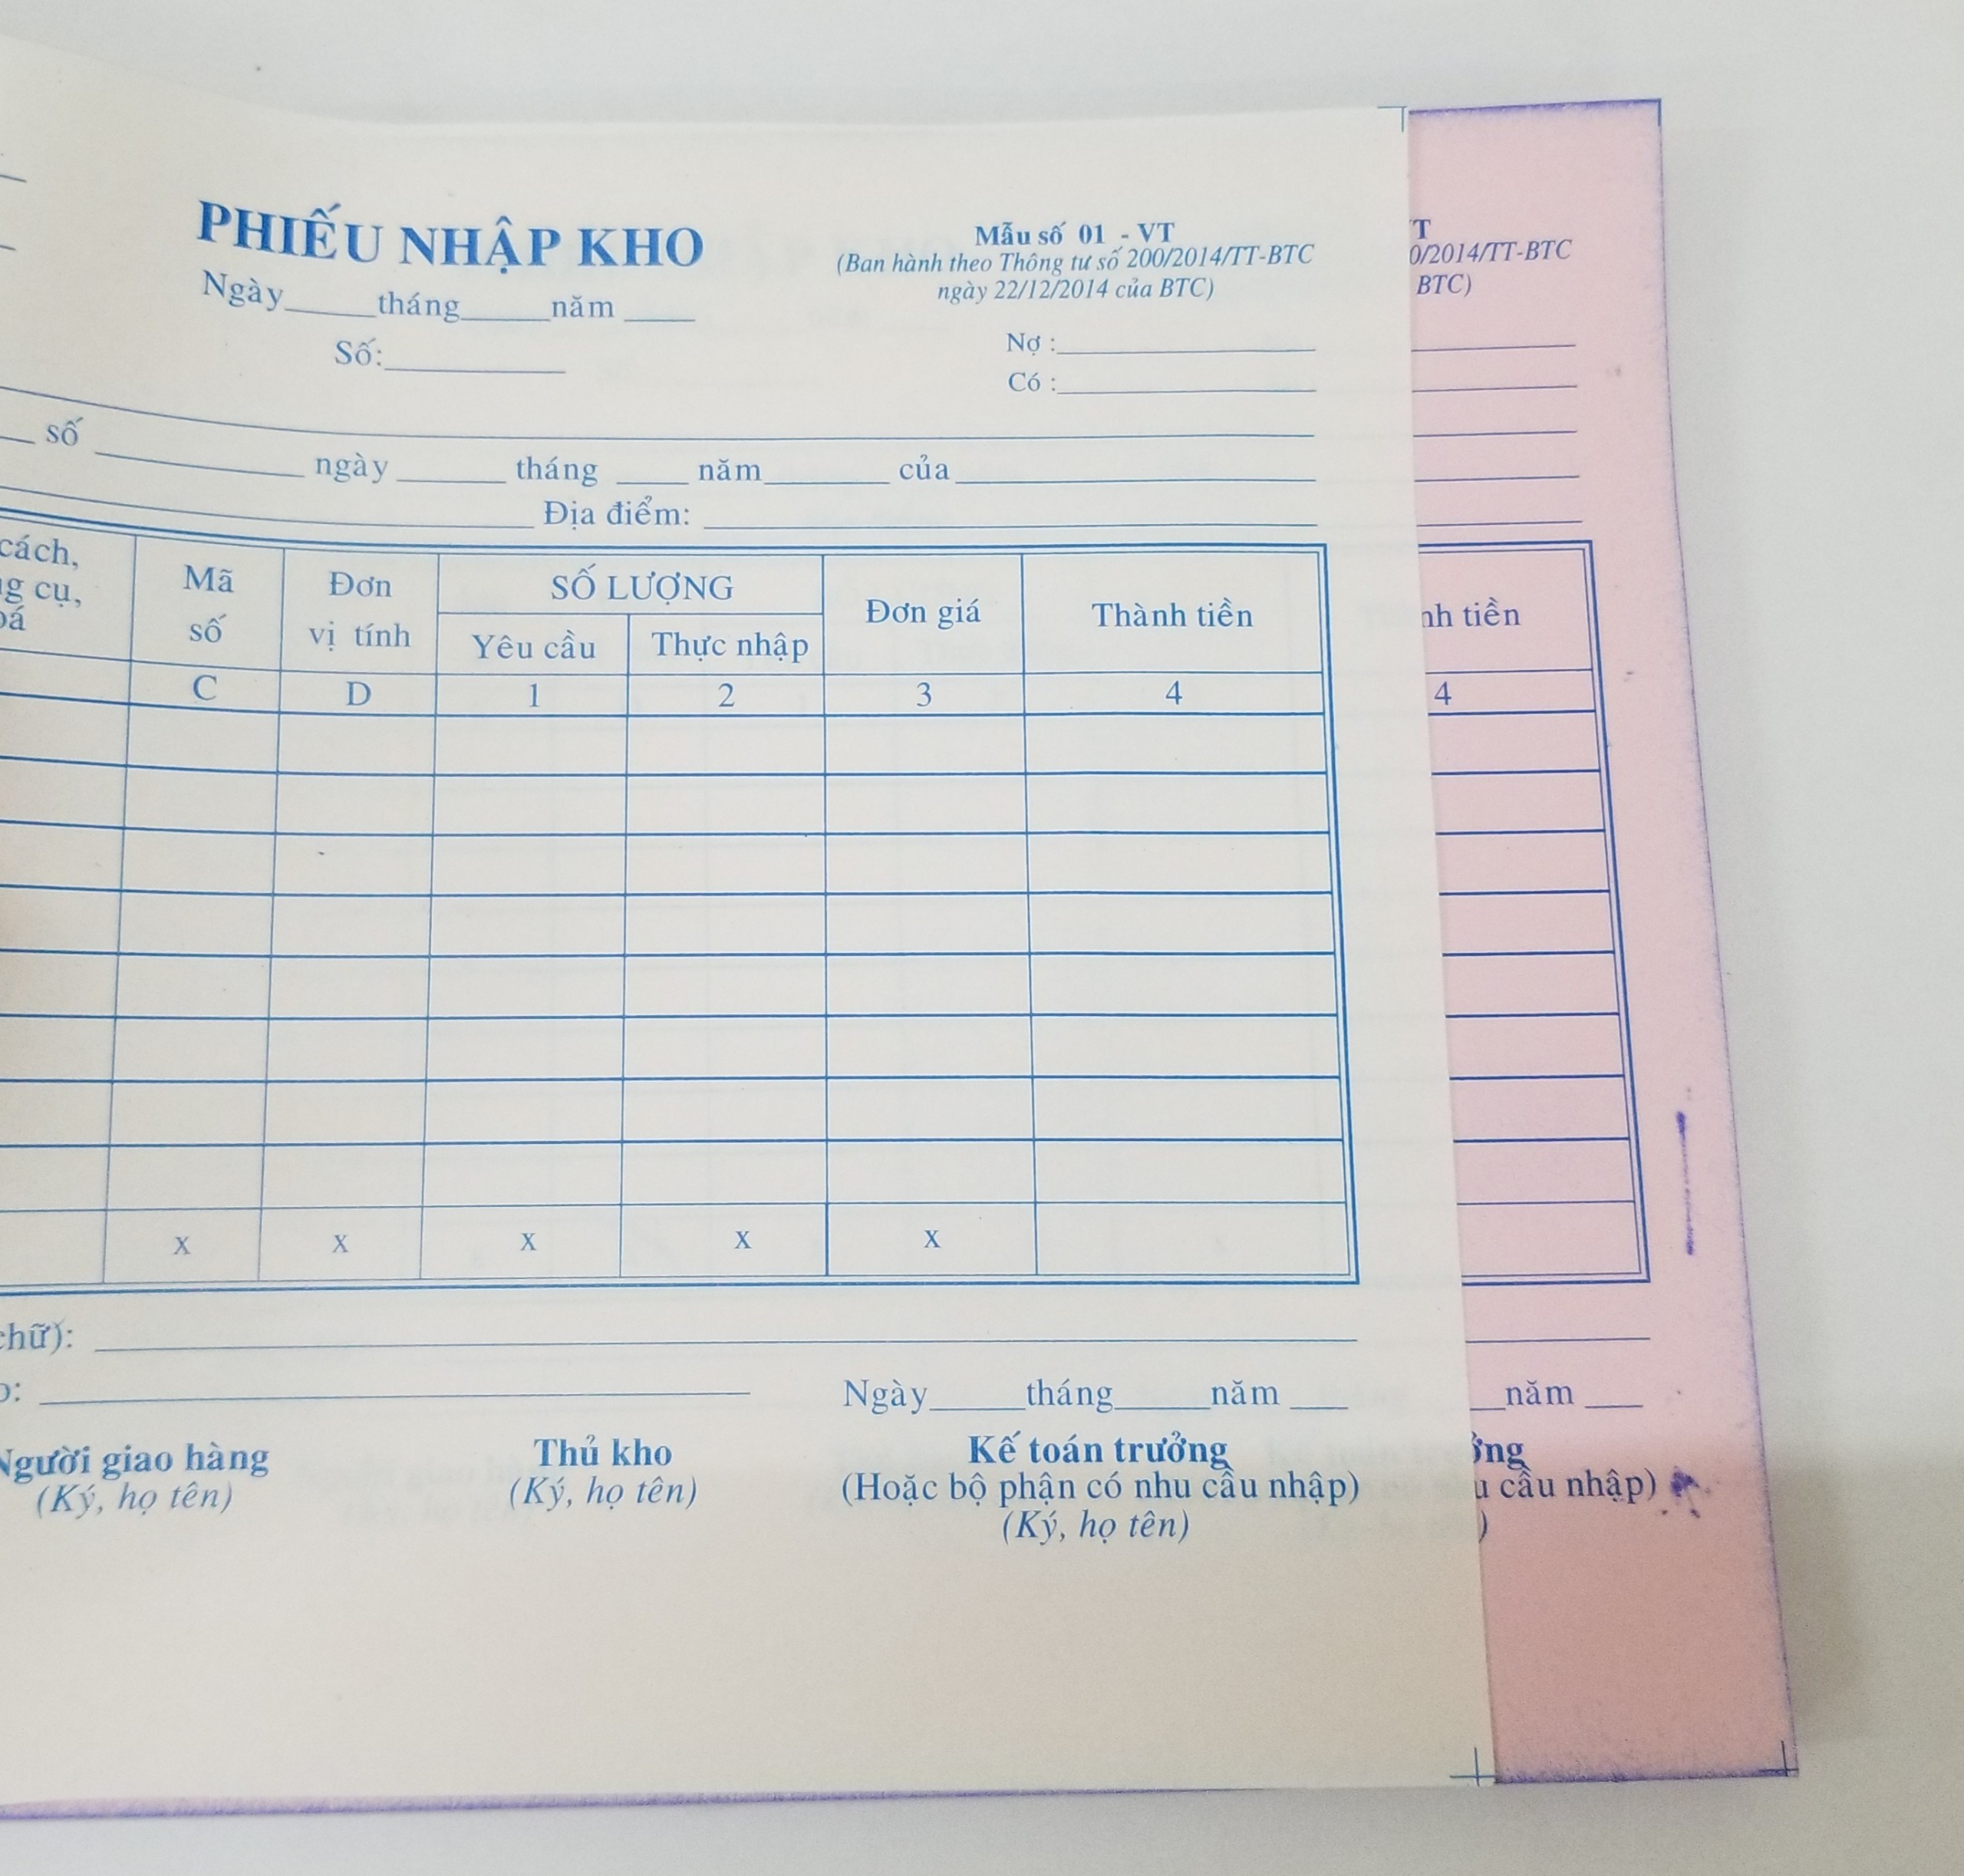 PHIẾU NHẬP KHO
Ngày_____tháng_____năm ____
Số:__________
Mẫu số 01 - VT
(Ban hành theo Thông tư số 200/2014/TT-BTC
ngày 22/12/2014 của BTC)
Nợ :
Có :
số
ngày tháng năm của
Địa điểm:
cách,
cụ,
Mã số
Đơn vị tính
SỐ LƯỢNG
Yêu cầu
Thực nhập
Đơn giá
Thành tiền
C D 1 2 3 4
x x x x x
chữ):
Ngày_____tháng_____năm ___
Người giao hàng
(Ký, họ tên)
Thủ kho
(Ký, họ tên)
Kế toán trưởng
(Hoặc bộ phận có nhu cầu nhập)
(Ký, họ tên)
T
0/2014/TT-BTC
BTC)
tiền
4
năm ___
cầu nhập)
)